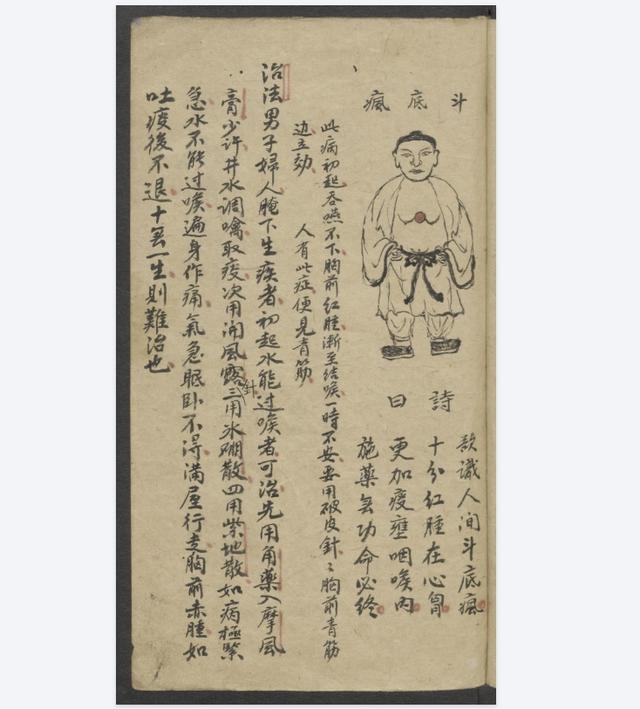 斗底瘋
詩曰
欲識人间斗底瘋
十分红腫在心胷
更加痰壅咽喉内
施藥無功命必终
此病初起吞嚥不下胸前红腫漸至结喉一時不安要用破皮針〻胸前青筋
边立効　人有此症便見青筋
治法男子婦人腌下生疾者初起水能过喉者可治先用角藥入摩風
膏少许井水調噙取痰次用開風露針三用氷硼散四用紫地散如病極緊
急水不能过喉遍身作痛氣急眠卧不得满屋行走胸前赤腫如
吐痰後不退十無一生则難治也